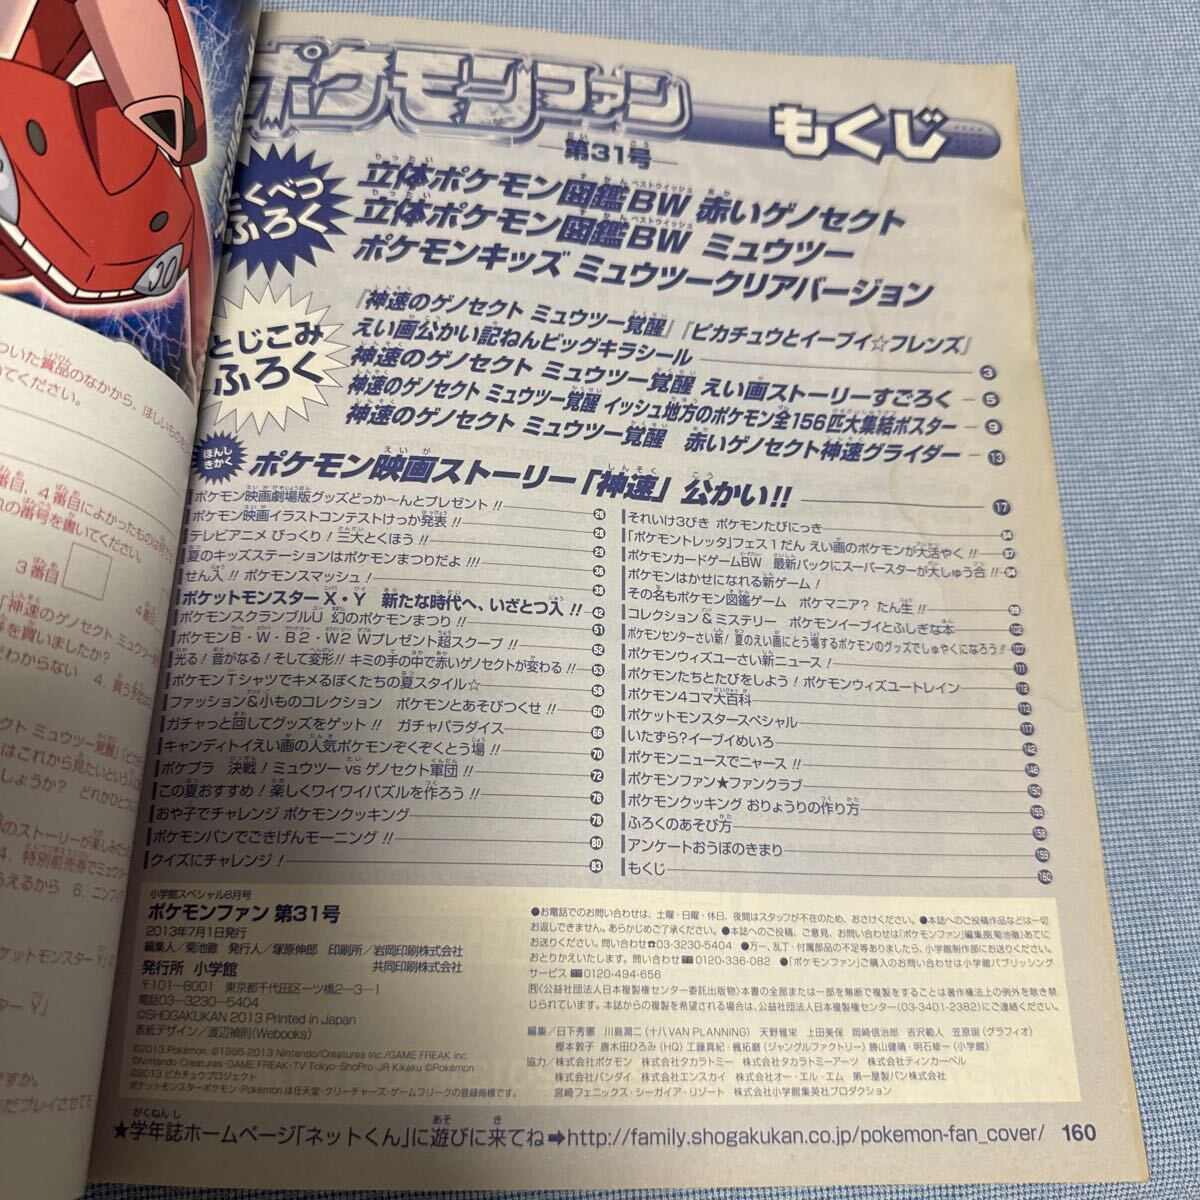 ポケモンファン もくじ
第31号
とくべつふろく
立体ポケモン図鑑BW 赤いゲノセクト
立体ポケモン図鑑BW ミュウツー
ポケモンキッズ ミュウツークリアバージョン
とじこみふろく
『神速のゲノセクト ミュウツー覚醒』『ピカチュウとイーブイ☆フレンズ』
えい画公かい記ねんビッグキラシール 3
神速のゲノセクト ミュウツー覚醒 えい画ストーリーすごろく 5
神速のゲノセクト ミュウツー覚醒 イッシュ地方のポケモン全156匹大集結ポスター 9
神速のゲノセクト ミュウツー覚醒 赤いゲノセクト神速グライダー 13
ほんしきかく
ポケモン映画ストーリー「神速」公かい!! 17
ポケモン映画劇場版グッズどっか〜んとプレゼント!! 26
ポケモン映画イラストコンテストけっか発表!! 28
テレビアニメ びっくり!三大とくほう!! 29
夏のキッズステーションはポケモンまつりだよ!!! 36
せん入!! ポケモンスマッシュ! 38
ポケットモンスター X・Y 新たな時代へ、いざとつ入!! 42
ポケモンスクランブルU 幻のポケモンまつり!! 51
ポケモンB・W・B2・W2 Wプレゼント超スクープ!! 52
光る!音がなる!そして変形!! キミの手の中で赤いゲノセクトが変わる!! 53
ポケモンTシャツでキメるぼくたちの夏スタイル☆ 58
ファッション&小ものコレクション ポケモンとあそびつくせ!! 60
ガチャっと回してグッズをゲット!! ガチャパラダイス 66
キャンディトイえい画の人気ポケモンぞくぞくとう場!! 70
ポケプラ 決戦!ミュウツーvsゲノセクト軍団!! 72
この夏おすすめ!楽しくワイワイパズルを作ろう!! 76
おや子でチャレンジ ポケモンクッキング 78
ポケモンパンでごきげんモーニング!! 80
クイズにチャレンジ! 83
それいけ3びき ポケモンたびにっき 84
「ポケモントレッタ」フェス1だん えい画のポケモンが大活やく!! 87
ポケモンカードゲームBW 最新パックにスーパースターが大しゅう合!! 94
ポケモンはかせになれる新ゲーム!
その名もポケモン図鑑ゲーム ポケマニア?たん生!! 98
コレクション&ミステリー ポケモンイーブイとふしぎな本 102
ポケモンセンターさい新!夏のえい画にとう場するポケモンのグッズでしゅやくになろう!! 107
ポケモンウィズユーさい新ニュース! 111
ポケモンたちとたびをしよう!ポケモンウィズユートレイン 112
ポケモン4コマ大百科 113
ポケットモンスタースペシャル 117
いたずら?イーブイめいろ 142
ポケモンニュースでニャース!! 146
ポケモンファン★ファンクラブ 150
ポケモンクッキング おりょうりの作り方 155
ふろくのあそび方 156
アンケートおうぼのきまり 159
もくじ 160
小学館スペシャル8月号
ポケモンファン 第31号
2013年7月1日発行
編集人/菊池徹 発行人/塚原伸郎 印刷所/岩岡印刷株式会社
共同印刷株式会社
発行所 小学館
〒101-8001 東京都千代田区一ツ橋2-3-1
電話03-3230-5404
©SHOGAKUKAN 2013 Printed in Japan
表紙デザイン/渡辺禎則(Webooks)
©2013 Pokémon. ©1995-2013 Nintendo/Creatures Inc./GAME FREAK inc.
©Nintendo・Creatures・GAME FREAK・TV Tokyo・ShoPro・JR Kikaku ©Pokémon
©2013 ピカチュウプロジェクト
ポケットモンスター・ポケモン・Pokémonは任天堂・クリーチャーズ・ゲームフリークの登録商標です。
●お電話でのお問い合わせは、土曜・日曜・休日、夜間はスタッフが不在のため、おさけください。●本誌へのご投稿作品などは一切
お返しできません。あらかじめご了承ください。●本誌へのご投稿、ご意見、お問い合わせは「ポケモンファン」編集長(菊池徹)あてに
お送りください。問い合わせ☎03-3230-5404 ●万一、乱丁・付属部品の不足等ありましたら、小学館制作部にお送りください。
おとりかえいたします。問い合わせ0120-336-082 ●「ポケモンファン」ご購入のお問い合わせは小学館パブリッシング
サービス0120-494-656
R〈公益社団法人日本複製権センター委託出版物〉本書の全部または一部を無断で複製をすることは著作権法上の例外を除き禁
じられています。本誌からの複製を希望される場合は、公益社団法人日本複製権センター(03-3401-2382)にご連絡ください。
編集/日下秀憲 川島潤二(十八VAN PLANNING) 天野雅栄 上田美保 岡崎信治郎 吉沢範人 笠原宙(グラフィオ)
樫本敦子 唐木田ひろみ(HQ) 工藤真紀・楓拓磨(ジャングルファクトリー) 勝山健晴・明石修一(小学館)
協力/株式会社ポケモン 株式会社タカラトミー 株式会社タカラトミーアーツ 株式会社ティンカーベル
株式会社バンダイ 株式会社エンスカイ 株式会社オー・エル・エム 第一屋製パン株式会社
宮崎フェニックス・シーガイア・リゾート 株式会社小学館集英社プロダクション
★学年誌ホームページ「ネットくん」に遊びに来てね➡http://family.shogakukan.co.jp/pokemon-fan_cover/ 160
ついた賞品のなかから、ほしいものを
てください。
番目、4番目によかったものは何で
れの番号を書いてください。
3番目 4番
「神速のゲノセクト ミュウツー
を買いましたか?
どわからない 4. 買う予定は
クト ミュウツー覚醒」「ピカチ
はこれから見たいという
しょうか? どれかひとつに
のストーリーが楽しみだっ
4. 特別前売券でミュウツー
らえるから 6. ニンフィア
ケットモンスターY」の
ターY」
すか。
だプレイさせても